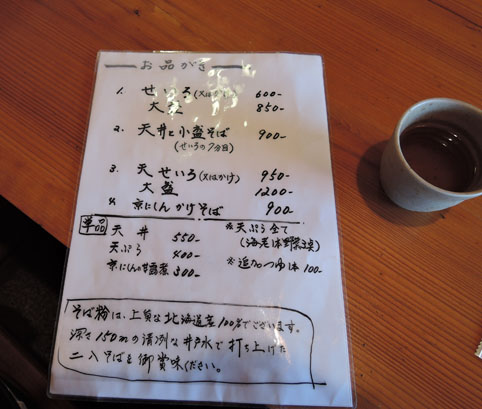 お品がき
1. せいろ(又はかけ) 600-
大盛 850-
2. 天丼と小盛そば 900-
(せいろの7分目)
3. 天せいろ(又はかけ) 950-
大盛 1200-
4. 京にしんかけそば 900-
単品
天丼 550-
天ぷら 400-
京にしんの甘露煮 300-
※天ぷら全て
(海老1本野菜3頂)
※追加つゆは100-
そば粉は、上質な北海道産100%でございます。
深さ150mの清冽な井戸水で打ち上げた
二八そばを御賞味ください。